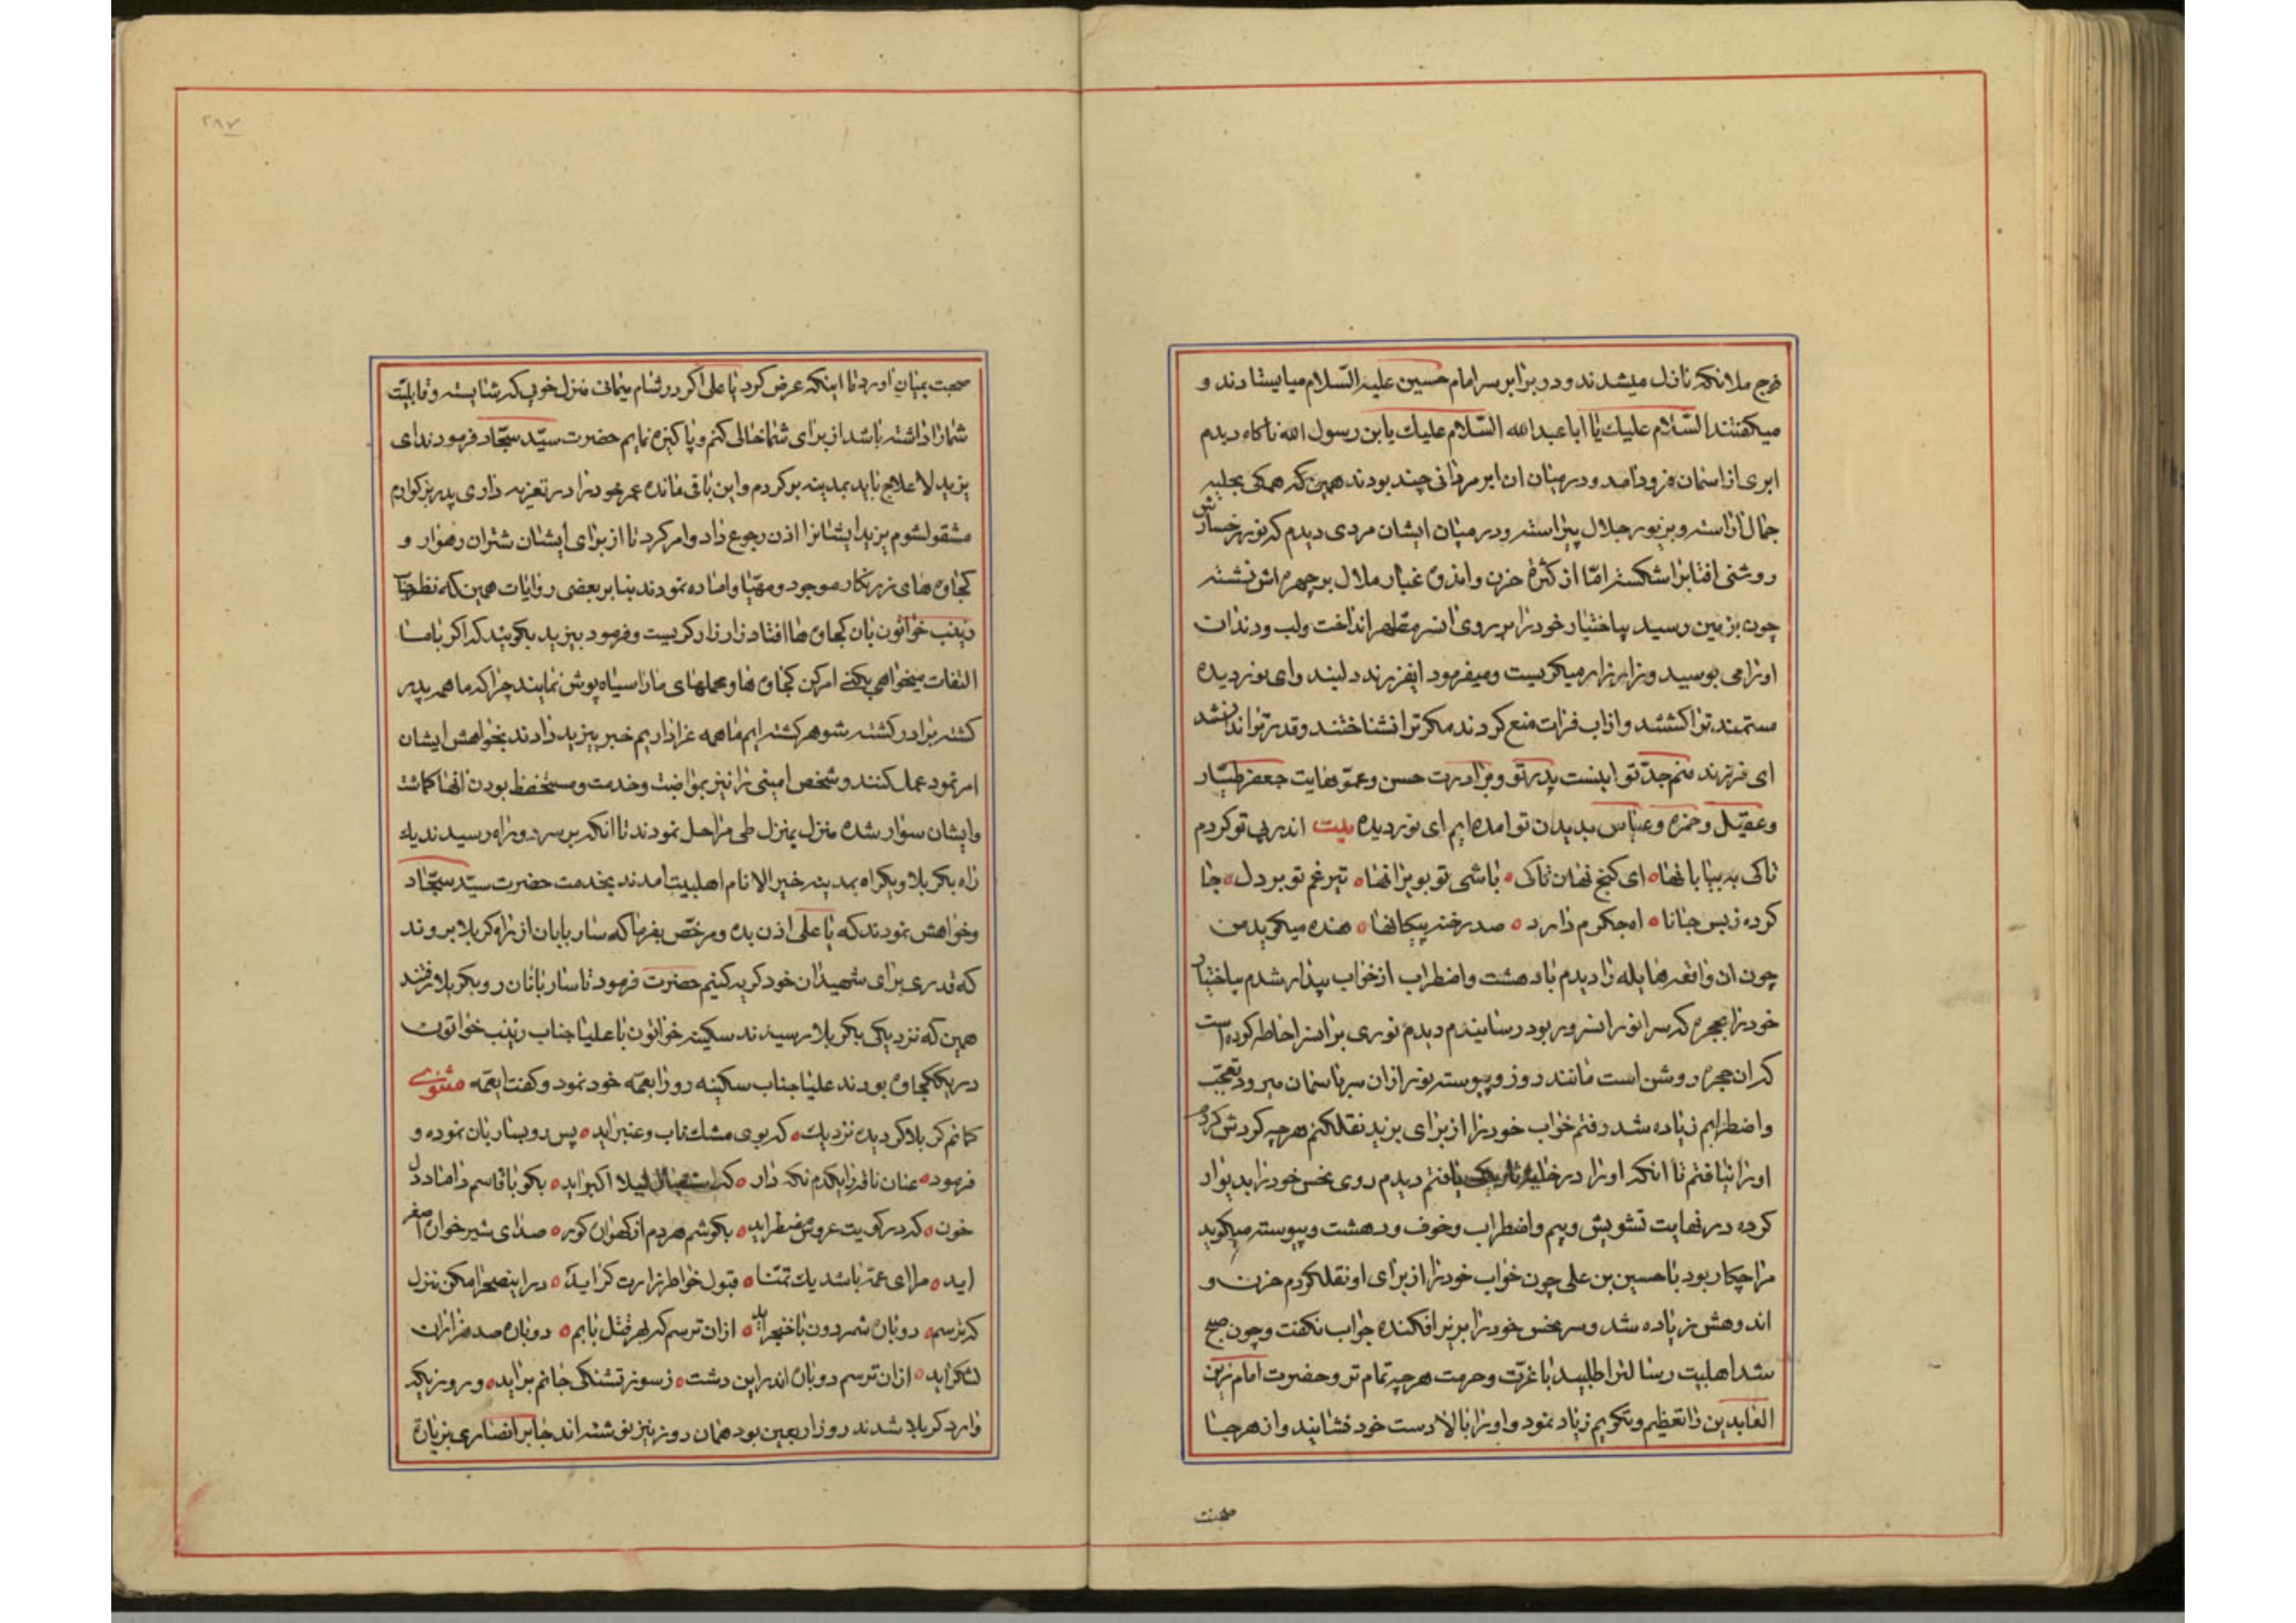 فوج ملائکه نازل میشدند و در برابر سر امام حسین علیه السّلام میایستادند و
میکفتند السّلام علیك یا ابا عبدالله السّلام علیك یابن رسول الله ناکاه دیدم
ابری از اسمان فرود امد و در میان ان ابر مردانی چند بودند همین که همکی بحلیه
جمال اراسته و بزیور جلال پیراسته و در میان ایشان مردی دیدم که نور رخسارش
روشنی افتابرا شکسته امّا از کثرة حزن و اندوه غبار ملال بر چهره اش نشسته
چون بزمین رسید بیاختیار خود را بر روی ان سر مطهر انداخت و لب و دندان
او را می بوسید و زار زار میکریست و میفرمود ایفرزند دلبند و ای نور دیده
مستمند ترا کشتند و از اب فرات منع کردند مکر ترا نشناختند و قدر ترا ندانستند
ای فرزند منم جدّ تو اینست پدر تو و برادرت حسن و عمّوهایت جعفر طیّار
و عقیل و حمزه و عبّاس بدیدن تو امده ایم ای نور دیده بیت اندر پی تو کردم
تاکی به بیابانها ای کنج نهان تاکی باشی تو بویرانها تیر غم تو بر دل جا
کرده ز بس جانا اه جکرم دارد صد رخنه پیکانها هنده میکوید من
چون ان واقعه هایله را دیدم با دهشت و اضطراب از خواب بیدار شدم بیاختیار
خود را بحجره که سر انور انسرور بود رسانیدم دیدم نوری بر انسر احاطه کرده است
که ان حجره روشن است مانند روز و پیوسته نور از ان سر باسمان میرود تعجّب
و اضطرابم زیاده شد رفتم خواب خود را از برای یزید نقل کنم هر چه کردش کردم
او را نیافتم تا انکه او را در خانه تاریکی یافتم دیدم روی نحس خود را بدیوار
کرده در نهایت تشویش و بیم و اضطراب و خوف و دهشت و پیوسته میکوید
مرا چکار بود با حسین بن علی چون خواب خود را از برای او نقل کردم حزن و
اندوهش زیاده شد و سر نحس خود را بزیر افکنده جواب نکفت و چون صبح
شد اهلبیت رسالترا طلبید با عزّت و حرمت هر چه تمام تر و حضرت امام زین
العابدین را تعظیم و تکریم زیاد نمود و او را بالا دست خود نشانید و از هر جا
صحبت
۲۸۷
صحبت بمیان اورد تا اینکه عرض کرد یا علی اکر در شام میمانی منزل خوبی که شایسته و قابلیّت
شما را داشته باشد از برای شما خالی کنم و پاکیزه نمایم حضرت سیّد سجّاد فرمودند ای
یزید لا علاج باید بمدینه بر کردم و این باقی مانده عمر خود را در تعزیه داری پدر بزرکوارم
مشقول شوم یزید ایشانرا اذن رجوع داد و امر کرد تا از برای ایشان شتران رهوار و
کجاوه های زرنکار موجود و مهیّا و اماده نمودند بنا بر بعضی روایات همین که نظر جناب
زینب خواتون بان کجاوه ها افتاد زار زار کریست و فرمود بیزید بکویید که اکر با ما
التفات میخواهی بکنی امر کن کجاوه ها و محملهای ما را سیاه پوش نمایند چرا که ما همه پدر
کشته برادر کشته شوهر کشته ایم ما همه عزاداریم خبر بیزید دادند بخواهش ایشان
امر نمود عمل کنند و شخص امینی را نیز بمواضبت و خدمت و مستحفظ بودن انها کماشت
و ایشان سوار شده منزل بمنزل طی مراحل نمودند تا انکه بر سر دو راه رسیدند یك
راه بکربلا و یکراه بمدینه خیر الانام اهلبیت امدند بخدمت حضرت سیّد سجّاد
و خواهش نمودند که یا علی اذن بده و مرخّص بفرما که ساربابان از راه کربلا بروند
که قدری برای شهیدان خود کریه کنیم حضرت فرمود تا ساربانان رو بکربلا رفتند
همین که نزدیکی بکربلا رسیدند سکینه خواتون با علیا جناب زینب خواتون
در یك کجاوه بودند علیا جناب سکینه رو را بعمّه خود نمود و کفت ایعمّه مثنوی
کمانم کربلا کردیده نزدیك که بوی مشك ناب و عنبر اید پس رو بساربان نموده و
فرمود عنان ناقه را یکدم نکه دار که استقبال لیلا اکبر اید بکو با قاسم داماد دل
خون که در کویت عروس مضطر اید بکوشم هر دم از کهوان کور صدای شیر خوان اصغر
اید مرا ای عمّه باشد یك تمنّا قبول خواطر زارت کر اید در اینصحرا مکن منزل
که ترسم دوباره شمر دون با خنجر اید از ان ترسم که بهر قتل بابم دوباره صد هزاران
لشکر اید از ان ترسم دوباره اندر این دشت ز سوز تشنکی جانم بر اید و روزیکه
وارد کربلا شدند روز اربعین بود همان روز نیز نوشته اند جابر انصاری بزیارة